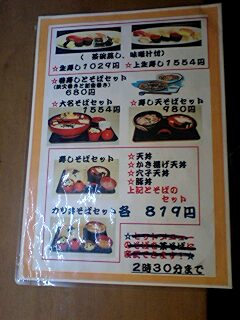 (茶碗蒸し、味噌汁付)
☆生寿し1029円 ☆上生寿し1554円
☆巻寿しとそばセット
680円
☆大名そばセット
1554円
☆寿し天そばセット
980円
寿しそばセット
☆天丼
☆かき揚げ天丼
☆穴子天丼
☆豚丼
上記とそばの
セット
カツ丼そばセット 各 819円
2時30分まで